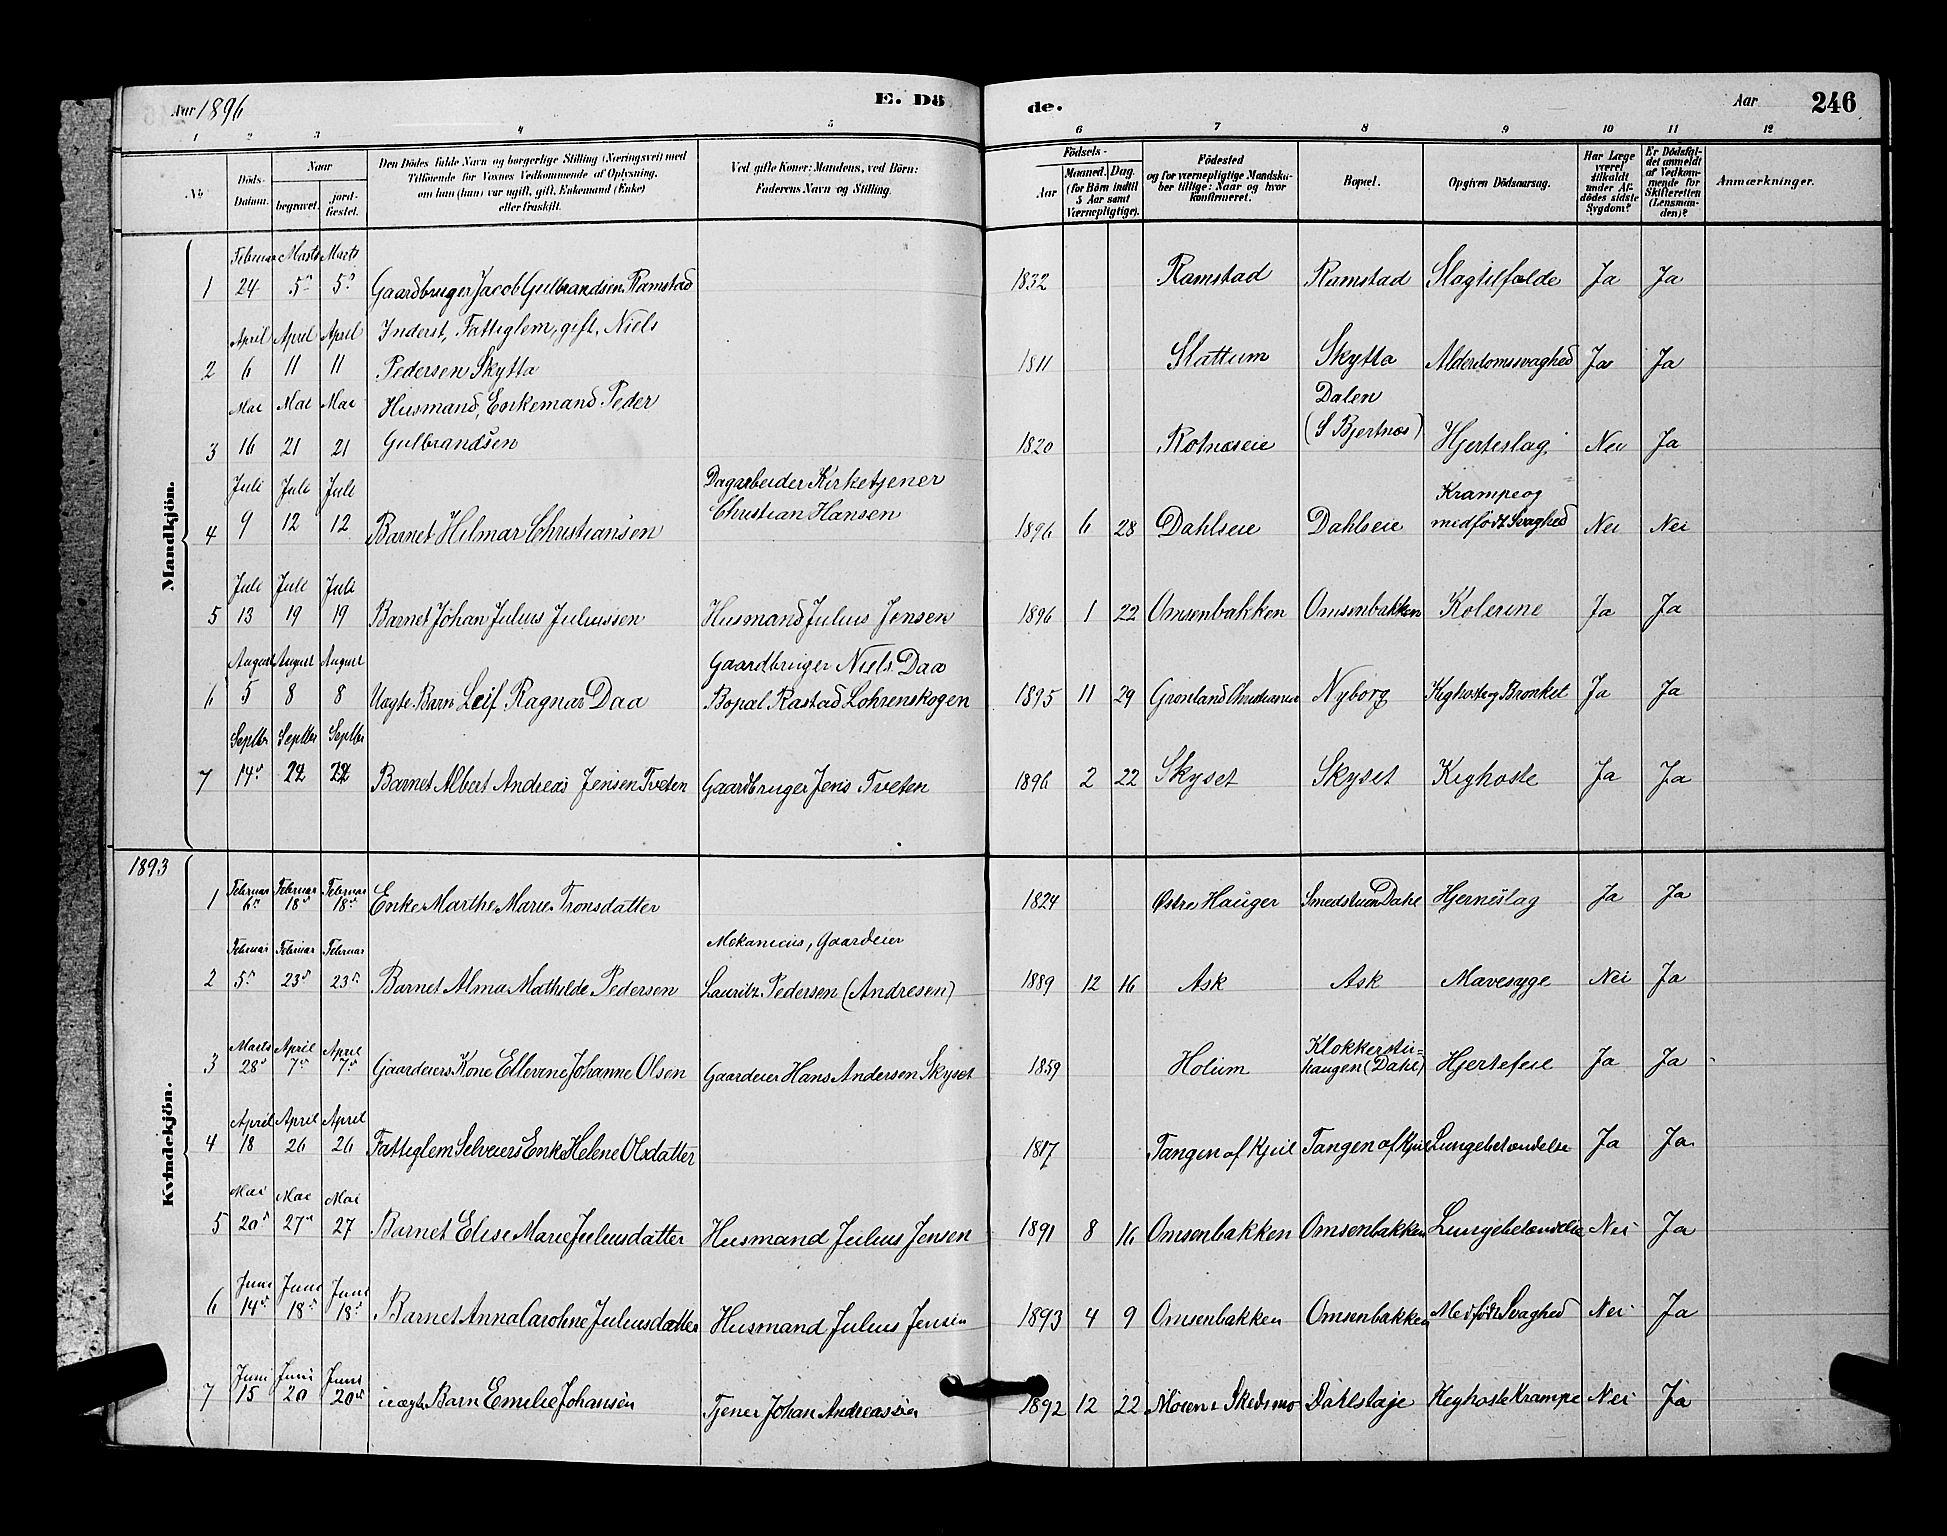 Aar 1896
E. Dö
de.
Aar
246
1 2 3 4 5 6 7 8 9 10 11 12
No
Döds-Datum.
Naar
begravet.
jord-fæstet.
Den Dödes fulde Navn og borgerlige Stilling (Næringsvei) med
Tilföiende for Voxnes Vedkommende af Oplysning,
om han (hun) var ugift, gift, Enkemand (Enke)
eller fraskilt.
Ved gifte Koner: Mandens, ved Börn:
Faderens Navn og Stilling.
Födsels-
Aar
Maaned. Dag.
(for Börn indtil
5 Aar samt
Værnepligtige).
Födested
og for værnepligtige Mandska-
ber tillige: Naar og hvor
konfirmeret.
Bopæl.
Opgiven Dödsaarsag.
Har Læge
været
tilkaldt
under Af-
dödes sidste
Sygdom?
Er Dödsfal-
det anmeldt
af Vedkom-
mende for
Skifteretten
(Lensman-
den)?
Anmærkninger.
Mandkjön.
Februar Marts Marts
1 24 5 5 Gaardbruger Jacob Gulbrandsen Ramstad 1832 Ramstad Ramstad Slagtilfælde Ja Ja
April April April Inderst, Fattiglem, gift, Niels
2 6 11 11 Pedersen Skytta 1811 Slattum Skytta Alderdomssvaghed Ja Ja
Mai Mai Mai Husmand, Enkemand Peder Dalen
3 16 21 21 Gulbrandsen 1820 Rotnæseie (S Bjertnæs) Hjerteslag Nei Ja
Juli Juli Juli Dagarbeider Kirketjener Krampe og
4 9 12 12 Barnet Hilmar Christiansen Christian Hansen 1896 6 28 Dahlseie Dahlseie medfødt Svaghed Nei Nei
Juli Juli Juli
5 13 19 19 Barnet Johan Julius Juliussen Husmand Julius Jensen 1896 1 22 Omsenbakken Omsenbakken Kolerine Ja Ja
August August August Gaardbruger Niels Daa
6 5 8 8 Uægte Barn Leif Ragnar Daa Bopæl Rastad Lohrenskogen 1895 11 29 Grønland Christiania Nyborg Kighoste og Bronkit Ja Ja
Septbr Septbr Septbr
7 14 22 22 Barnet Albert Andreas Jensen Tveten Gaardbruger Jens Tveten 1896 2 22 Skyset Skyset Kighoste Ja Ja
1893
Kvindekjön.
Februar Februar Februar
1 6 18 18 Enke Marthe Marie Tronsdatter 1824 Østre Hauger Smedstuen Dahl Hjerneslag Ja Ja
Februar Februar Februar Mekanicus, Gaardeier
2 5 23 23 Barnet Alma Mathilde Pedersen Lauritz Pedersen (Andresen) 1889 12 16 Ask Ask Mavesyge Nei Ja
Marts April April Klokkerstu=
3 28 7 7 Gaardeiers Kone Ellevine Johanne Olsen Gaardeier Hans Andersen Skyset 1859 Holum haugen (Dahl) Hjertefeil Ja Ja
April April April
4 18 26 26 Fattiglem Selveiers Enke Helene Olsdatter 1817 Tangen af Kjul Tangen af Kjul Lungebetændelse Ja Ja
Mai Mai Mai
5 20 27 27 Barnet Elise Marie Juliusdatter Husmand Julius Jensen 1891 8 16 Omsenbakken Omsenbakken Lungebetændelse Nei Ja
Juni Juni Juni
6 14 18 18 Barnet Anna Caroline Juliusdatter Husmand Julius Jensen 1893 4 9 Omsenbakken Omsenbakken Medfødt Svaghed Nei Ja
Juni Juni Juni
7 15 20 20 uægte Barn Emelie Johansen Tjener Johan Andreassen 1892 12 22 Moen i Skedsmo Dahlstaje Kighoste Krampe Nei Ja